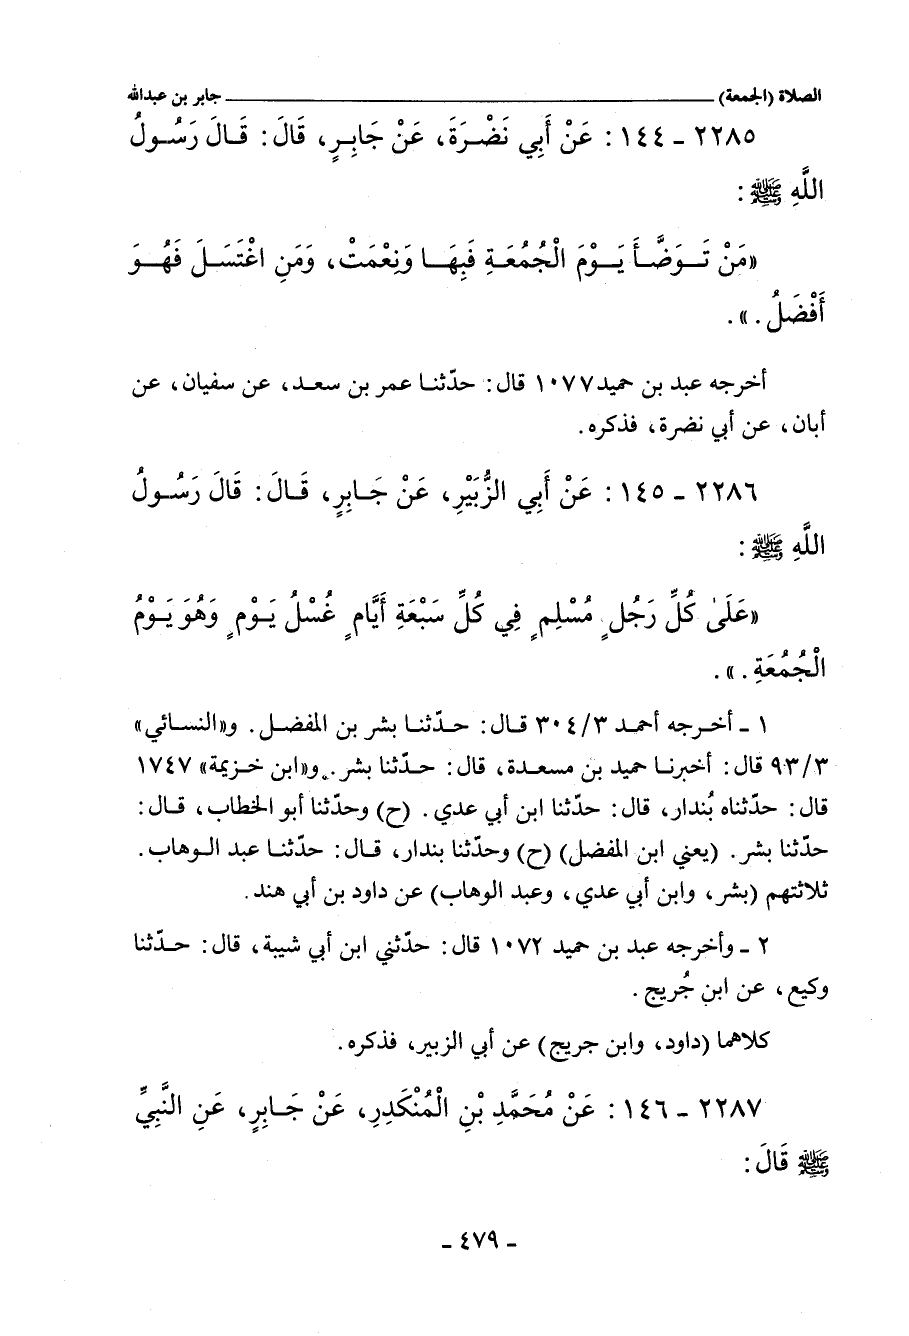 الصلاة (الجمعة) ــــــــــــــــــــ جابر بن عبدالله
٢٢٨٥ ـ ١٤٤ : عَنْ أَبِي نَضْرَةَ، عَنْ جَابِرٍ، قَالَ: قَالَ رَسُولُ
اللَّهِ ﷺ :
«مَنْ تَوَضَّأَ يَوْمَ الْجُمُعَةِ فَبِهَا وَنِعْمَتْ، وَمَنِ اغْتَسَلَ فَهُوَ
أَفْضَلُ . » .
أخرجه عبد بن حميد ١٠٧٧ قال: حدّثنا عمر بن سعد، عن سفيان، عن
أبان، عن أبي نضرة، فذكره.
٢٢٨٦ ـ ١٤٥ : عَنْ أَبِي الزُّبَيْرِ، عَنْ جَابِرٍ، قَالَ: قَالَ رَسُولُ
اللَّهِ ﷺ :
«عَلَىٰ كُلِّ رَجُلٍ مُسْلِمٍ فِي كُلِّ سَبْعَةِ أَيَّامٍ غُسْلُ يَوْمٍ وَهُوَ يَوْمُ
الْجُمُعَةِ . » .
١ ـ أخرجه أحمد ٣٠٤/٣ قال: حدّثنا بشر بن المفضل. و«النسائي»
٩٣/٣ قال: أخبرنا حميد بن مسعدة، قال: حدّثنا بشر. و«ابن خزيمة» ١٧٤٧
قال: حدّثناه بُندار، قال: حدّثنا ابن أبي عدي. (ح) وحدّثنا أبو الخطاب، قال:
حدّثنا بشر. (يعني ابن المفضل) (ح) وحدّثنا بندار، قال: حدّثنا عبد الوهاب.
ثلاثتهم (بشر، وابن أبي عدي، وعبد الوهاب) عن داود بن أبي هند.
٢ ـ وأخرجه عبد بن حميد ١٠٧٢ قال: حدّثني ابن أبي شيبة، قال: حدّثنا
وكيع، عن ابن جُريج.
كلاهما (داود، وابن جريج) عن أبي الزبير، فذكره.
٢٢٨٧ ـ ١٤٦ : عَنْ مُحَمَّدِ بْنِ الْمُنْكَدِرِ، عَنْ جَابِرٍ، عَنِ النَّبِيِّ
ﷺ قَالَ:
ـ ٤٧٩ ـ